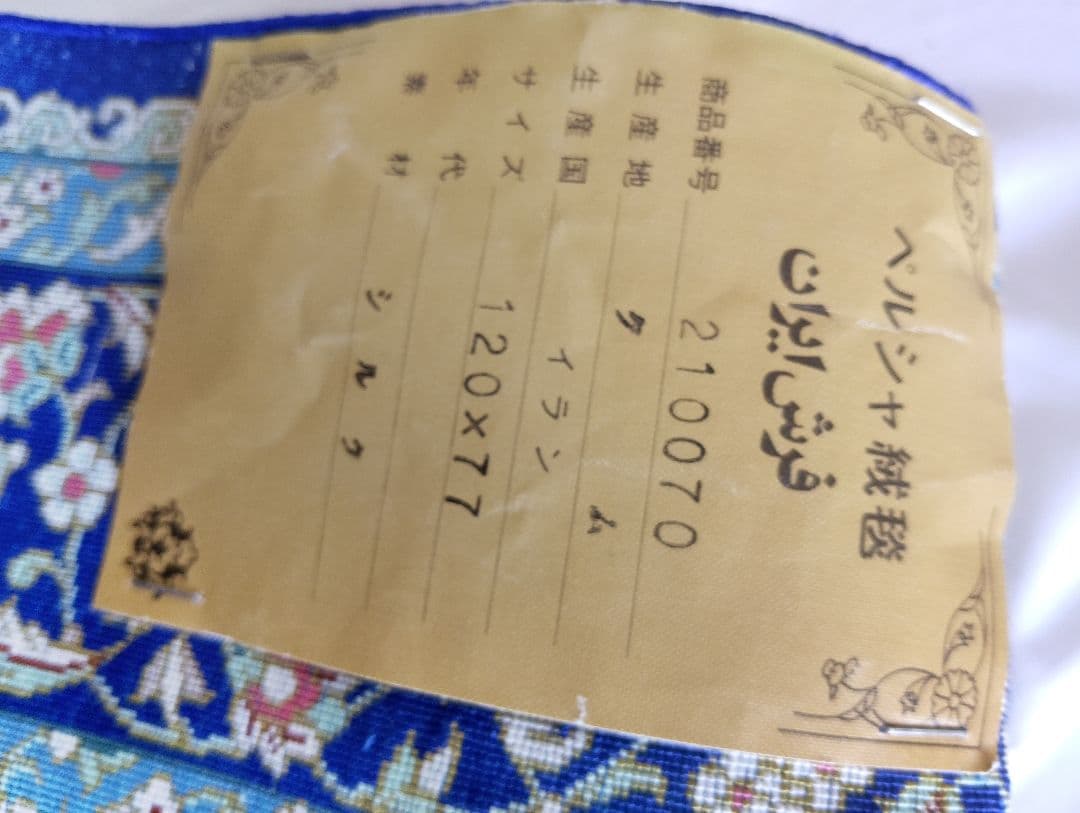 ペルシャ絨毯
فرش ایران
商品番号 210070
生産地 クム
生産国 イラン
サイズ 120×77
年代
素材 シルク